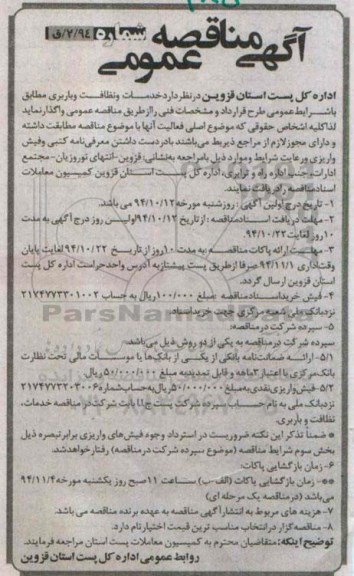 آگهی مناقصه عمومی
شماره ۹٤/۷/ق
اداره کل پست استان قزوین در نظر دارد خدمات ونظافت وباربری مطابق
باشرایط عمومی طرح قرارداد و مشخصات فنی را از طریق مناقصه عمومی واگذار نماید
لذا کلیه اشخاص حقوقی که موضوع اصلی فعالیت آنها با موضوع مناقصه مطابقت داشته
و دارای مجوز لازم از مراجع ذیربط می‌باشند بادردست داشتن معرفی‌نامه کتبی وفیش
واریزی ورعایت شرایط وموارد ذیل بامراجعه به‌نشانی: قزوین-انتهای نوروزیان-مجتمع
ادارات-جنب اداره راه و ترابری، اداره کل پست استان قزوین کمیسیون معاملات
اسنادمناقصه رادریافت نمایند.
۱- تاریخ درج اولین آگهی: روزشنبه مورخه ۹۴/۱۰/۱۲ می باشد.
۲- مهلت دریافت اسنادمناقصه: از تاریخ ۹۴/۱۰/۱۲ اولین روز درج آگهی به مدت
۱۰روز لغایت ۹۴/۱۰/۲۲.
۳- مهلت ارائه پاکات مناقصه: به مدت ۱۰روز از تاریخ ۹۴/۱۰/۲۲ لغایت پایان
وقت اداری ۹۴/۱۱/۱ صرفا ازطریق پست پیشتاز به آدرس واحد حراست اداره کل پست
استان قزوین ارسال گردد.
۴- فیش خرید اسناد مناقصه :مبلغ ۱۰۰/۰۰۰ریال به حساب ۲۱۷۴۷۷۳۳۰۱۰۰۲
نزدبانک ملی شعبه مرکزی جهت خریداسناد.
۵- سپرده شرکت در مناقصه:
سپرده شرکت در مناقصه به یکی از دو روش ذیل می‌باشد.
۵/۱- ارائه ضمانت‌نامه بانکی از یکی از بانک‌ها یا موسسات مالی تحت نظارت
بانک‌مرکزی با اعتبار ۳ماهه و قابل تمدید به مبلغ ۵۰/۰۰۰/۰۰۰ریال
۵/۲-فیش‌واریزی‌نقدی‌به‌مبلغ ۵۰/۰۰۰/۰۰۰ریال‌به‌حساب‌شماره ۲۱۷۴۷۷۳۲۰۳۰۰۶
نزدبانک ملی به نام حساب سپرده شرکت پست ج.ا.ا بابت شرکت در مناقصه خدمات،
نظافت و باربری.
* ضمنا تذکر این نکته ضروریست در استرداد وجوه فیش‌های واریزی برابر تبصره ذیل
بخش سوم شرایط مناقصه (موضوع سپرده شرکت در مناقصه) رفتار خواهد شد.
۶- زمان بازگشایی پاکات:
**- زمان بازگشایی پاکات (الف-ب) ساعت ۱۱صبح روز یکشنبه مورخه ۹۴/۱۱/۴
می‌باشد (در مناقصه یک مرحله ای)
۷- هزینه های مربوط به انتشار آگهی مناقصه به عهده برنده مناقصه می باشد.
۸- مناقصه‌گزار در انتخاب مناسب ترین قیمت اختیار تام دارد.
توضیح اینکه: متقاضیان محترم به کمیسیون معاملات پست استان مراجعه فرمایند.
روابط عمومی اداره کل پست استان قزوین